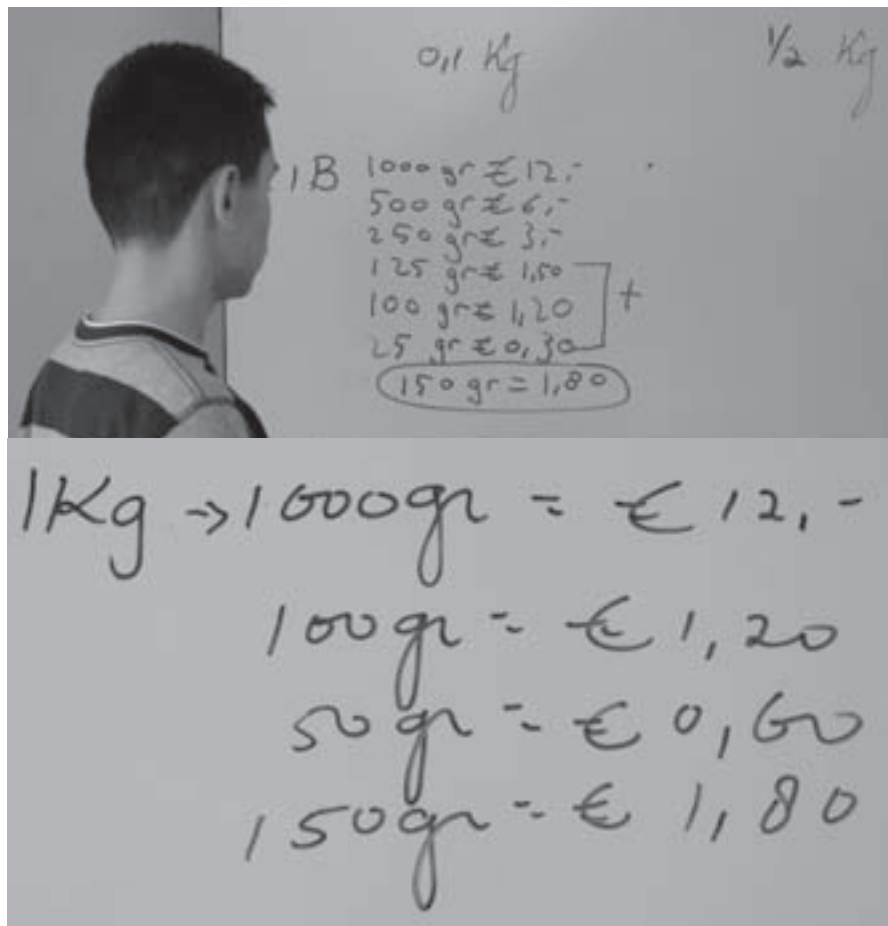 0,1 Kg
1/2 Kg
1B 1000 gr € 12,-
500 gr € 6,-
250 gr € 3,-
125 gr € 1,50
100 gr € 1,20
25 gr € 0,30
+
150 gr = 1,80
1Kg → 1000gr = € 12,-
100gr = € 1,20
50gr = € 0,60
150gr = € 1,80